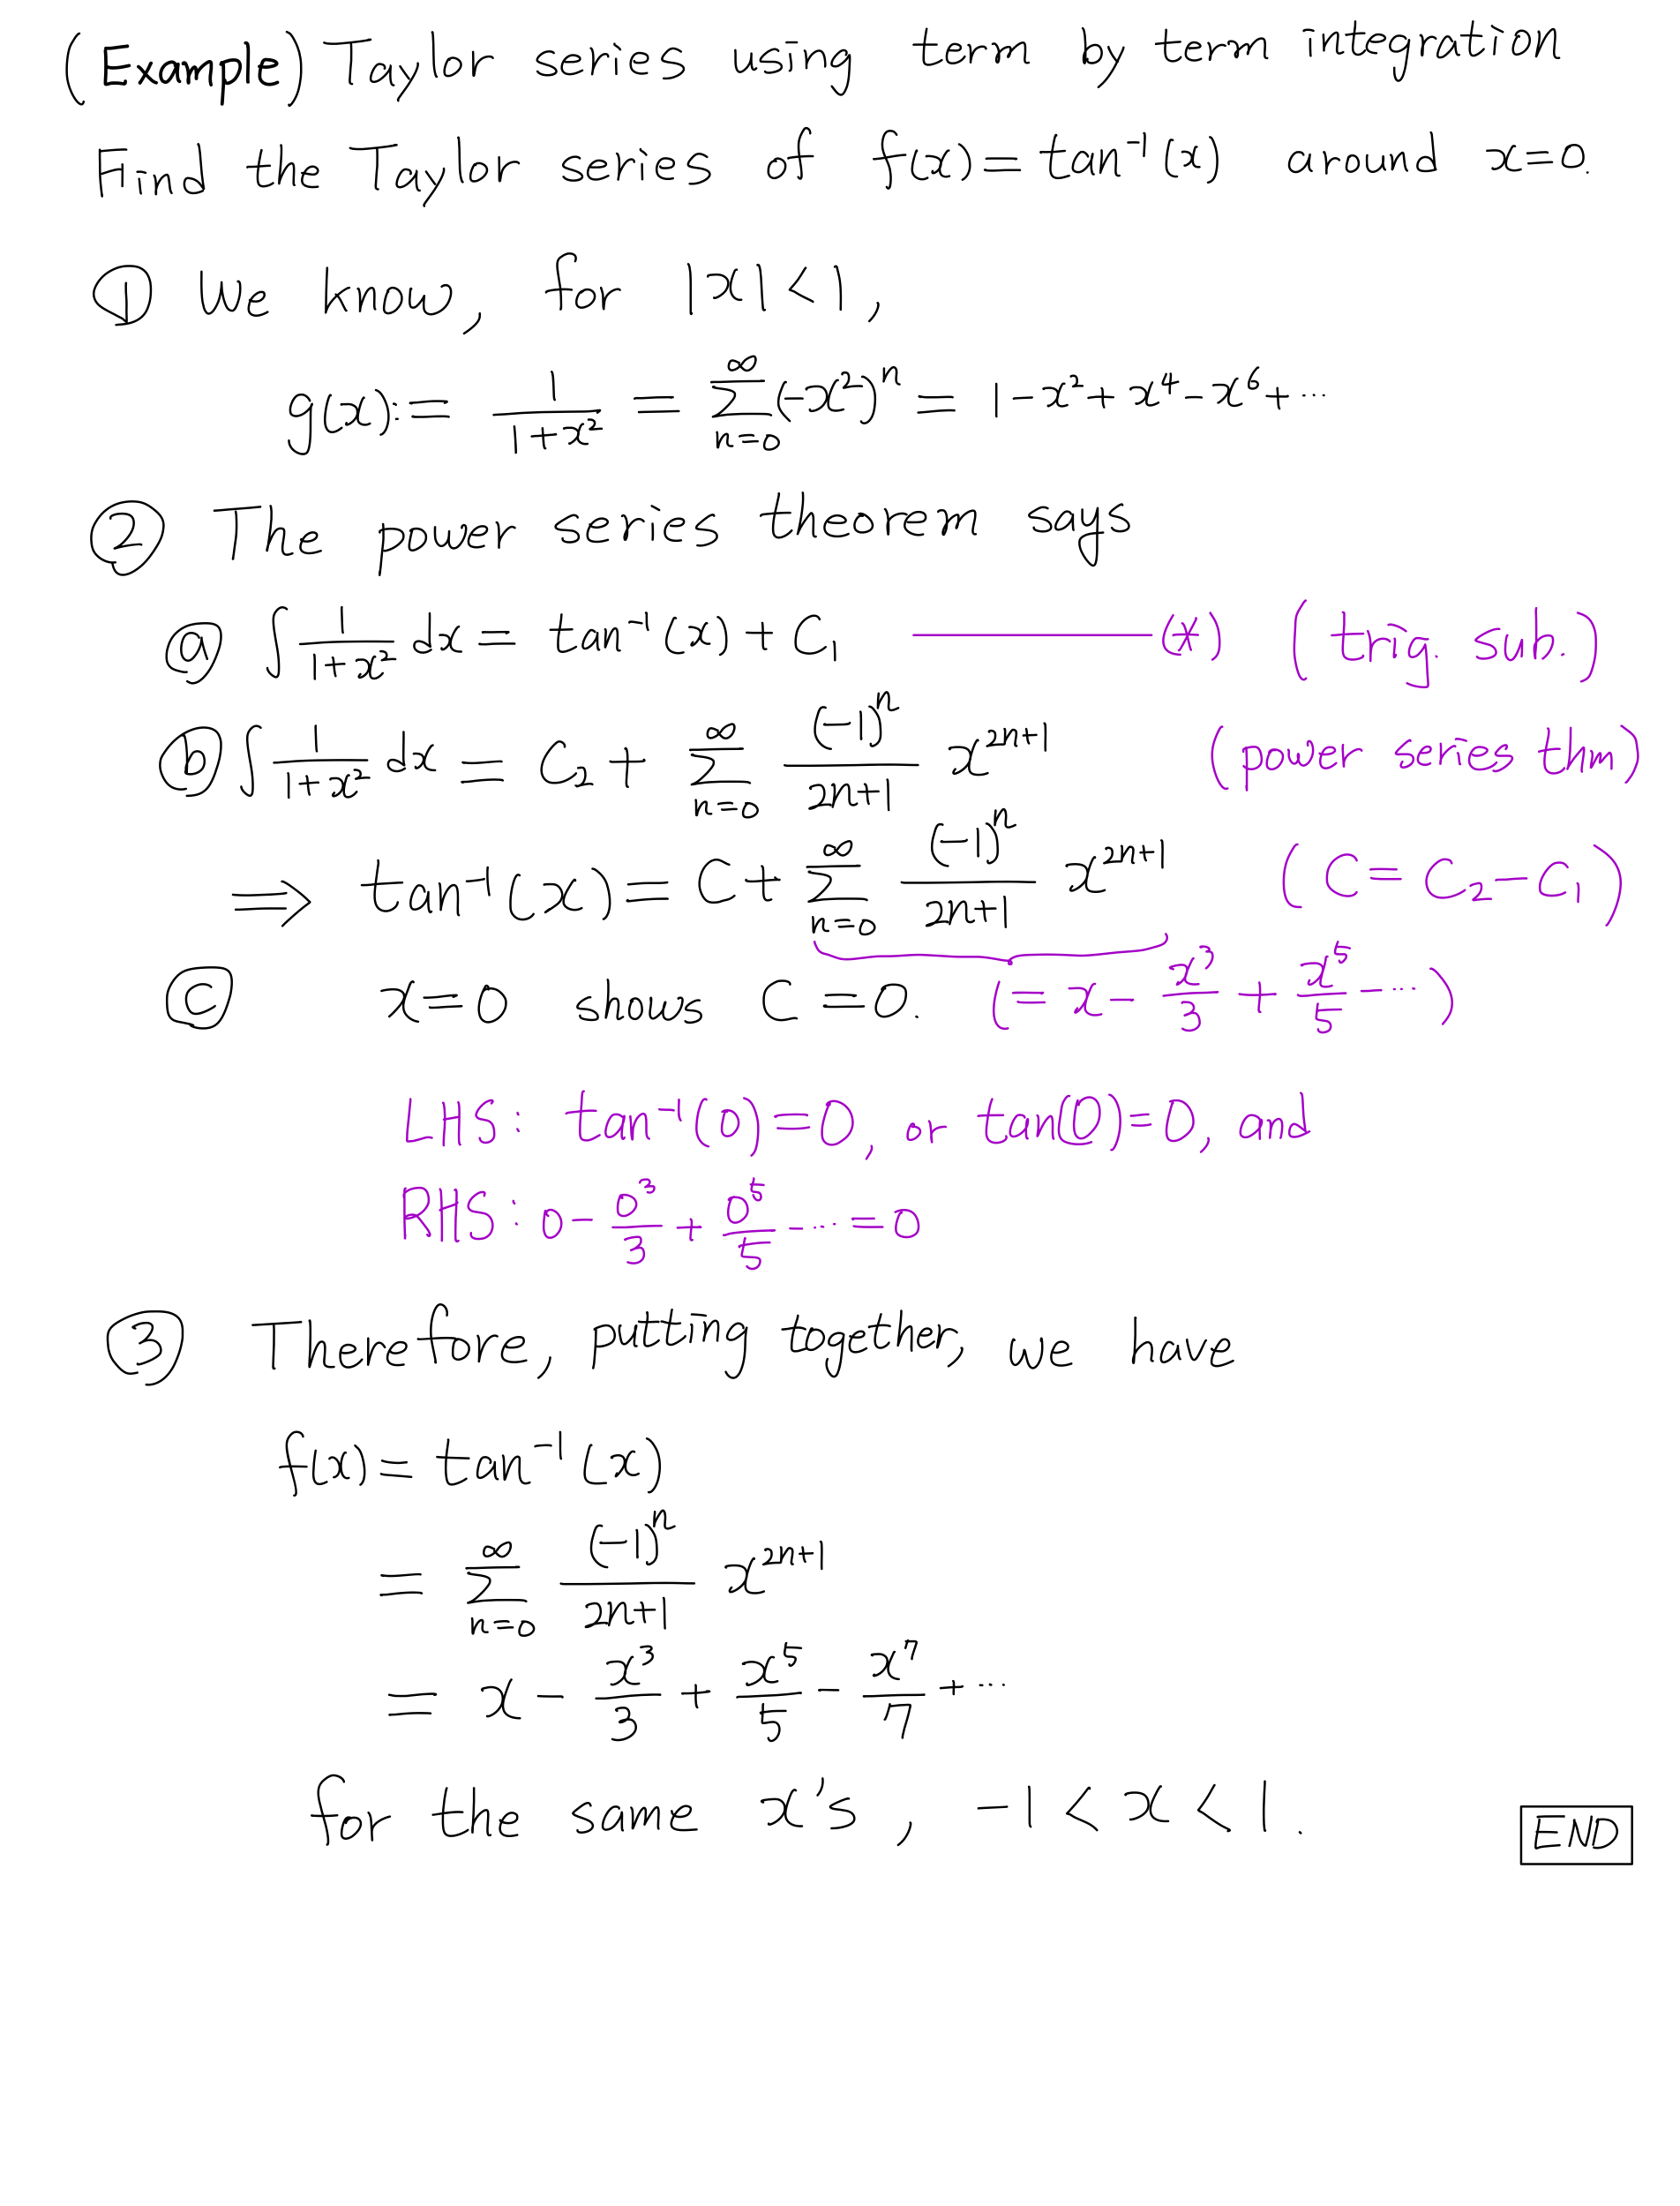 (Example) Taylor series using term by term integration
Find the Taylor series of f(x) = tan⁻¹(x) around x=0.
① We know, for |x|<1,
g(x) := 1/(1+x²) = ∑_{n=0}^{∞} (-x²)ⁿ = 1-x²+x⁴-x⁶+⋯
② The power series theorem says
ⓐ ∫ 1/(1+x²) dx = tan⁻¹(x) + C₁ ——— (*) (trig. sub.)
ⓑ ∫ 1/(1+x²) dx = C₂ + ∑_{n=0}^{∞} (-1)ⁿ/(2n+1) x²ⁿ⁺¹ (power series thm)
⟹ tan⁻¹(x) = C + ∑_{n=0}^{∞} (-1)ⁿ/(2n+1) x²ⁿ⁺¹ (C = C₂-C₁)
ⓒ x=0 shows C=0. (= x - x³/3 + x⁵/5 - ⋯)
LHS: tan⁻¹(0)=0, or tan(0)=0, and
RHS: 0 - 0³/3 + 0⁵/5 - ⋯ = 0
③ Therefore, putting together, we have
f(x) = tan⁻¹(x)
= ∑_{n=0}^{∞} (-1)ⁿ/(2n+1) x²ⁿ⁺¹
= x - x³/3 + x⁵/5 - x⁷/7 + ⋯
for the same x's, -1 < x < 1.
END